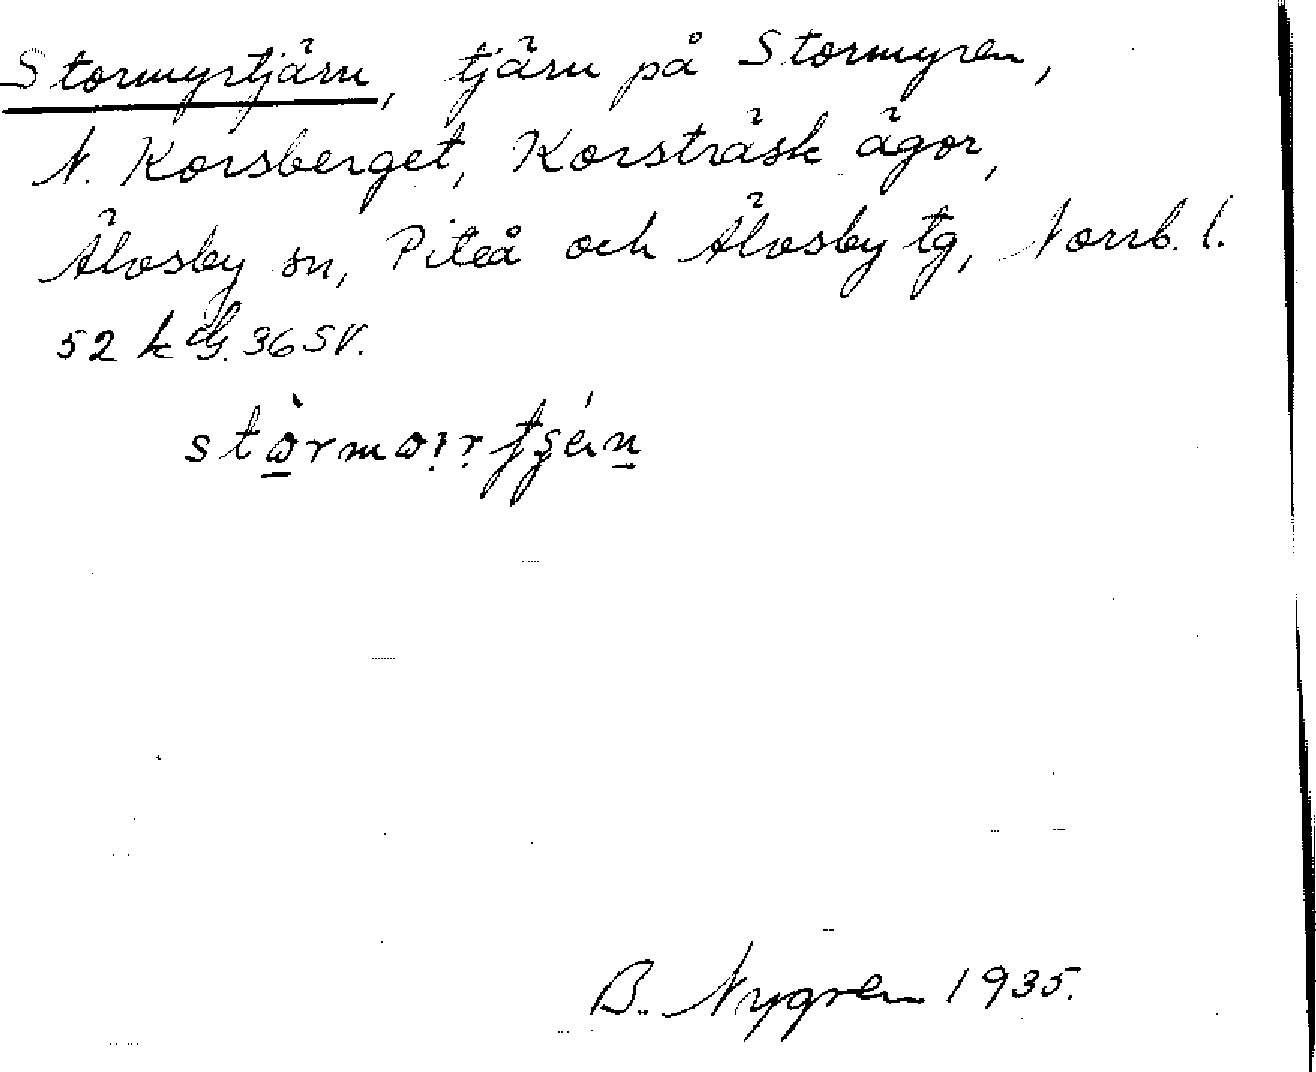 Stormyrtjärn, tjärn på Stormyren,
N. Korsberget, Korsträsk ägor,
Älvsby sn, Piteå och Älvsby tg, Norrb. l.
52 k 36 SV.
B. Nygren 1935.